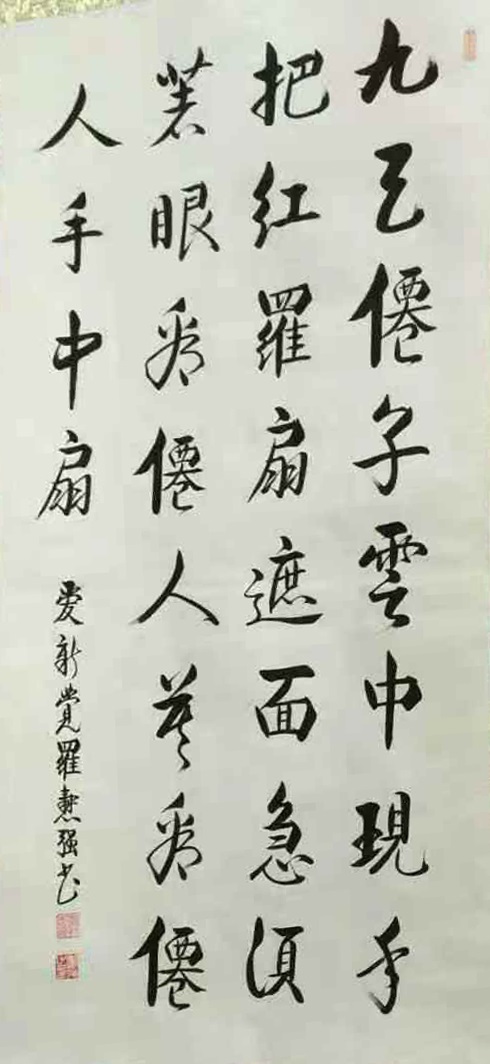 九天僊子雲中現手
把紅羅扇遮面急須
著眼看僊人莫看僊
人手中扇
愛新覺羅強書